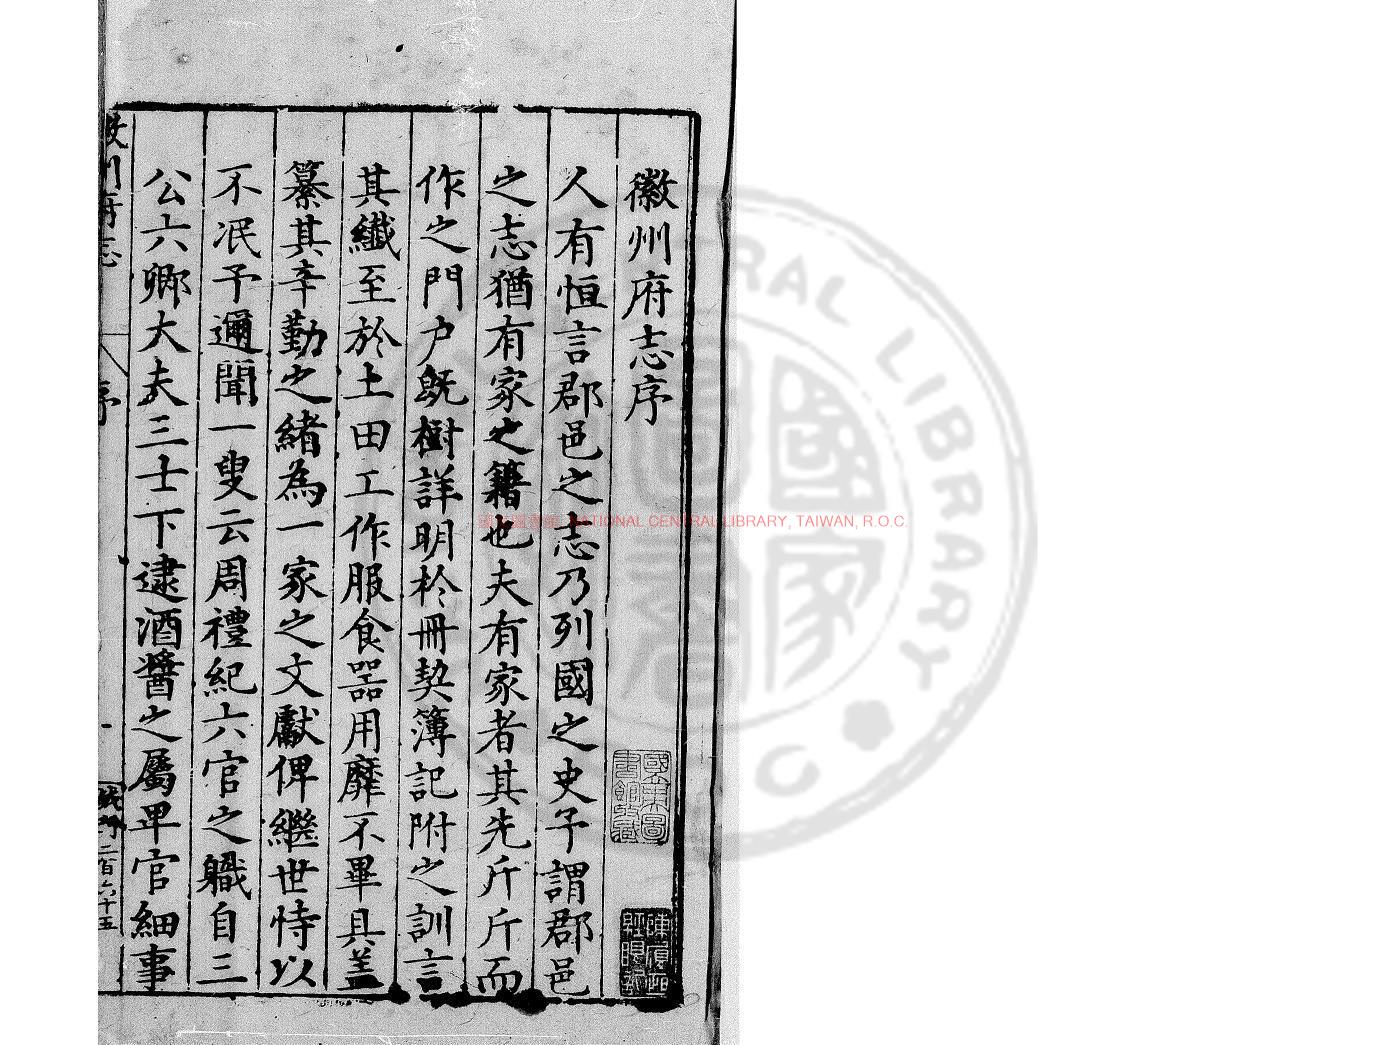 徽州府志序
人有恒言郡邑之志乃列國之史予謂郡邑
之志猶有家之籍也夫有家者其先斤斤而
作之門户旣樹詳明於冊契簿記附之訓言
其纖至於土田工作服食器用靡不畢具盖
纂其辛勤之緒為一家之文獻俾繼世恃以
不泯予邇聞一叟云周禮紀六官之職自三
公六卿大夫三士下逮酒醬之屬卑官細事
徽州府志
序
一
二百六十五
國家圖書館 NATIONAL CENTRAL LIBRARY, TAIWAN, R.O.C.
國家圖書
CENTRAL LIBRARY